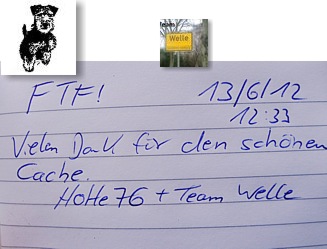 team
Welle
FTF! 13/6/12
12:33
Vielen Dank für den schönen
Cache.
HoHe76 + Team Welle